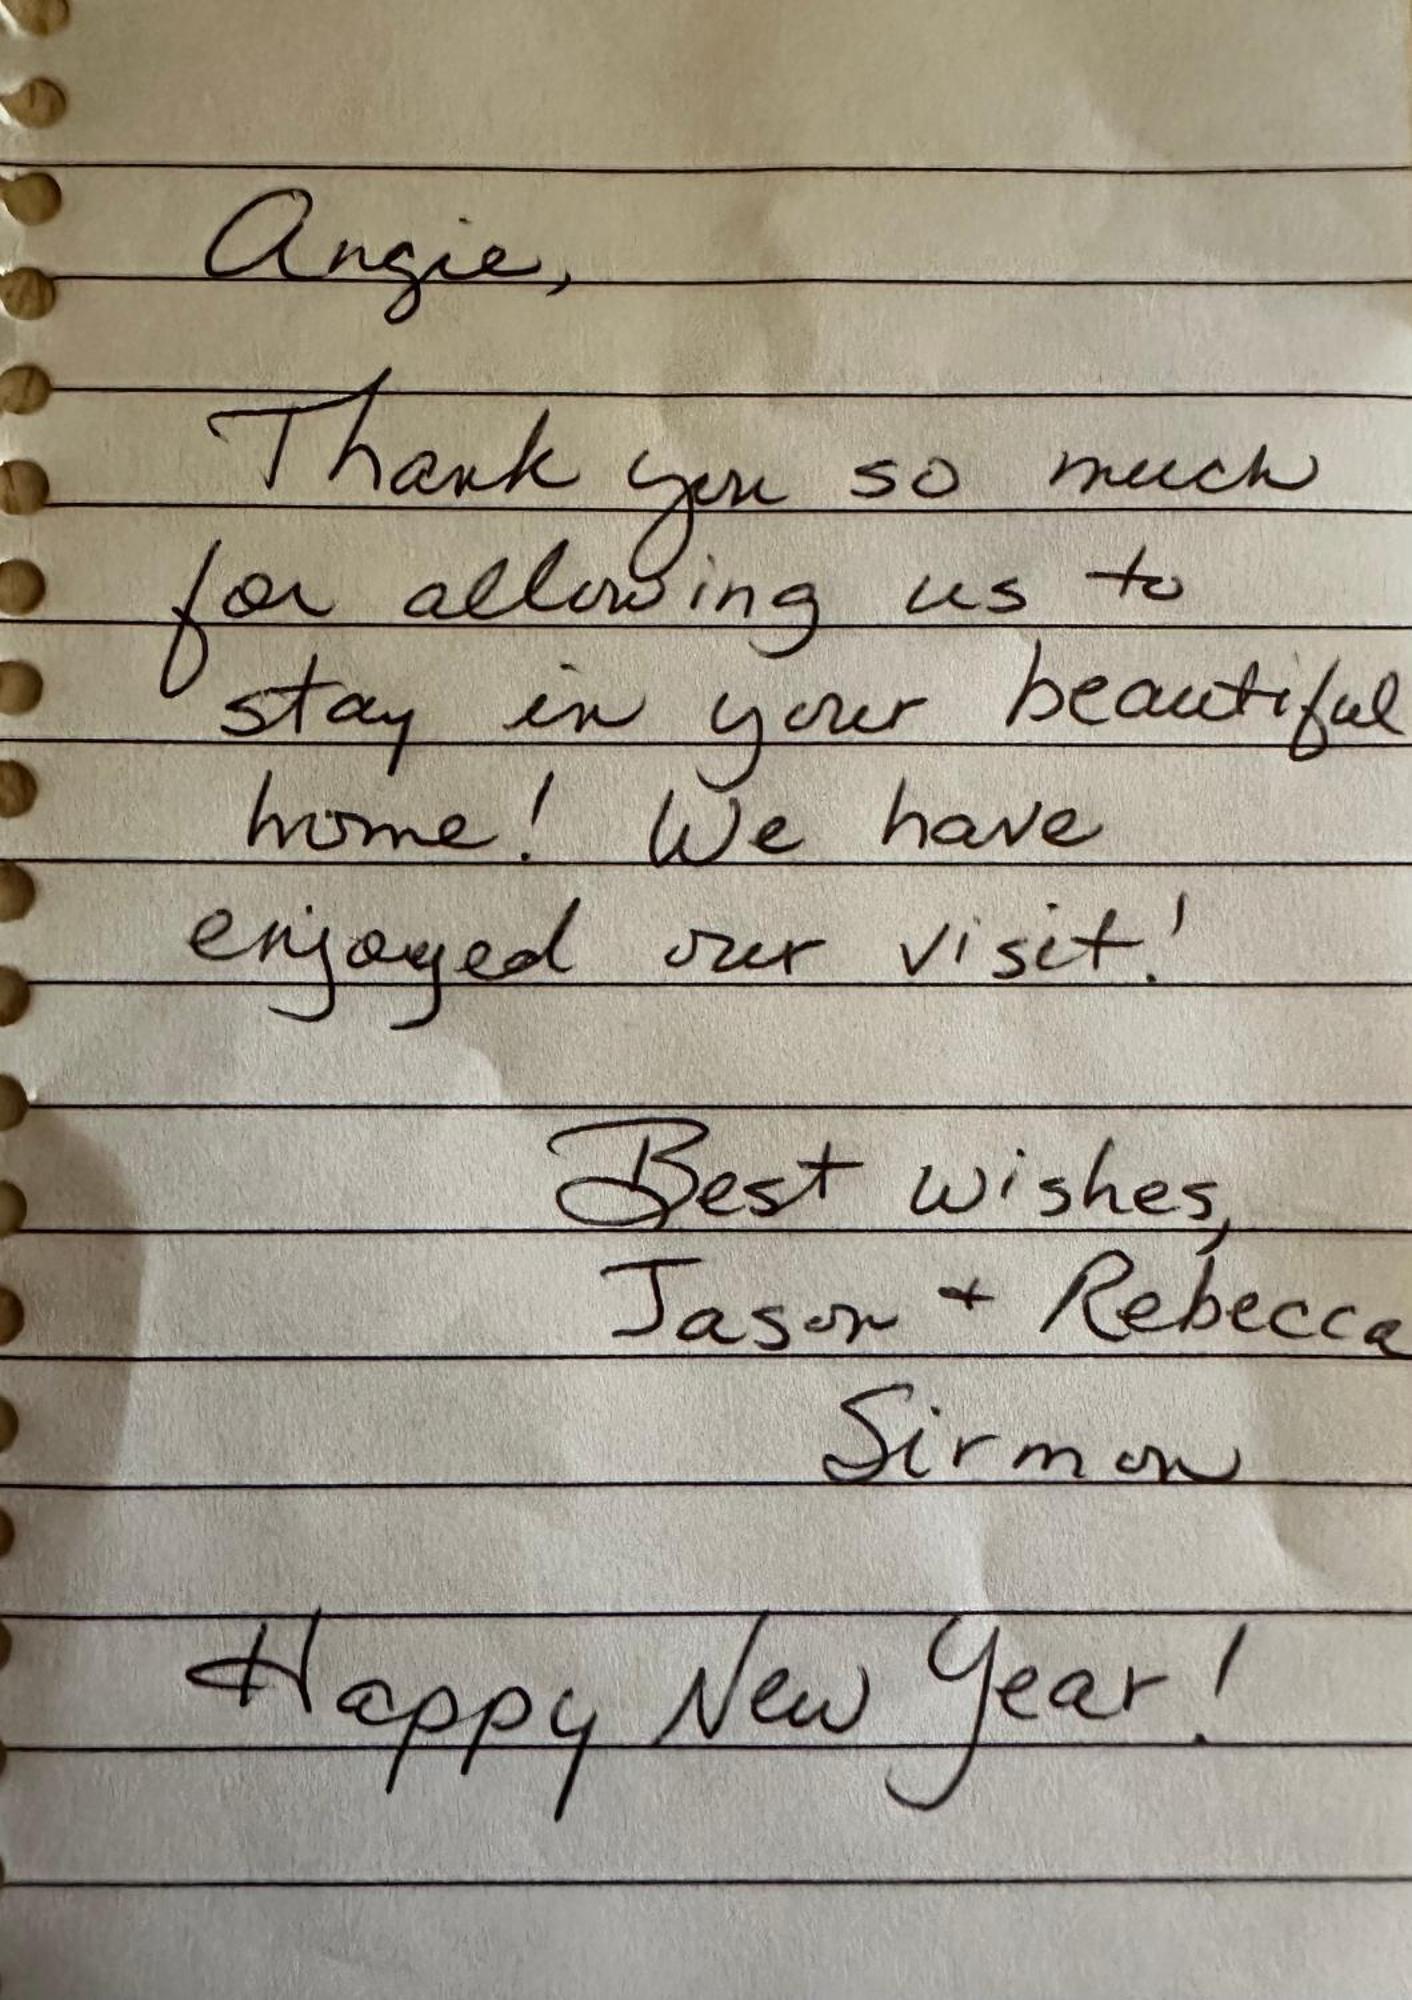 Angie,
Thank you so much
for allowing us to
stay in your beautiful
home! We have
enjoyed our visit!
Best wishes,
Jason + Rebecca
Sirmon
Happy New Year!